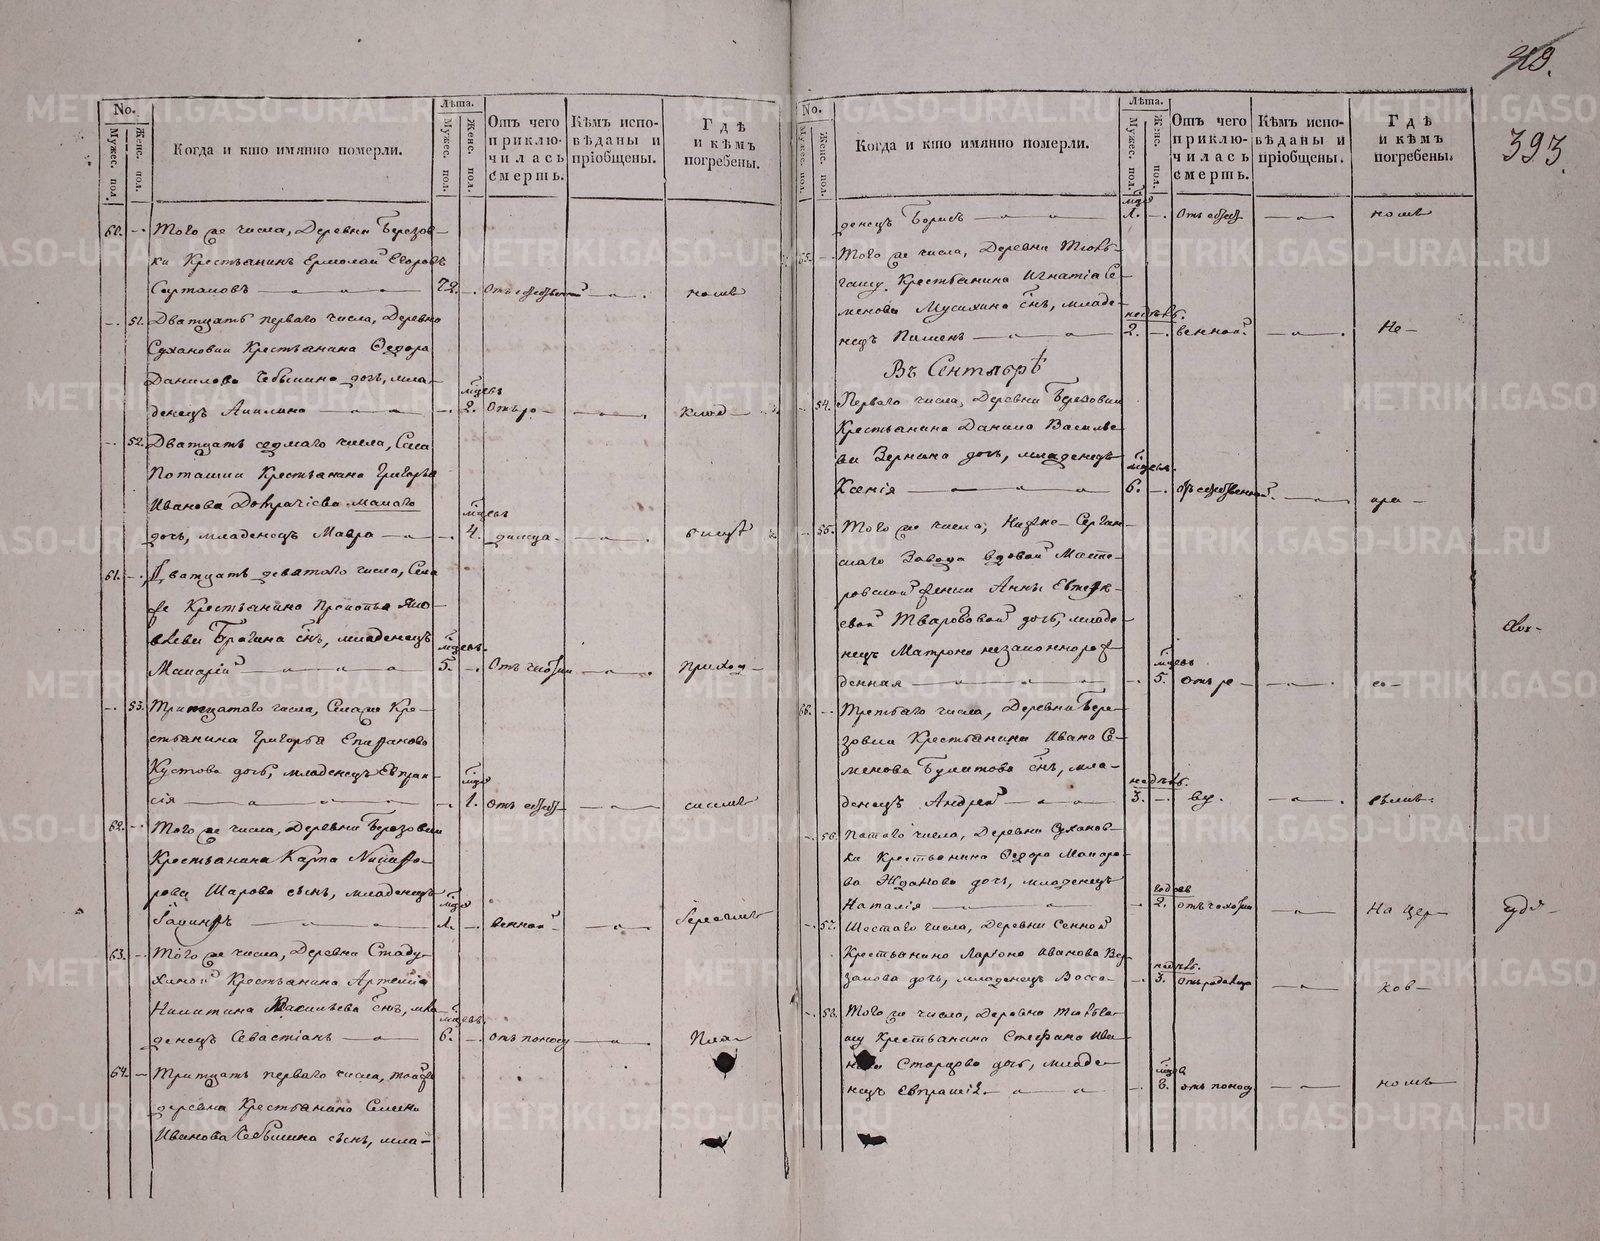 49.
393.
No.
Мужес. пол.
Женс. пол.
Когда и кто имянно померли.
Лѣта.
Мужес. пол.
Женс. пол.
Отъ чего приклю-
чилась смерть.
Кѣмъ испо-
вѣданы и
пріобщены.
Гдѣ
и кѣмъ
погребены.
60. Того же числа, Деревни Березов-
ки Крестьянинъ Ермолай Егоровъ
Сартаковъ 72. Отъ собственной номъ
51. Дватцать перваго числа, Деревни
Сухановки Крестьянина Федора
Данилова Чебыкина дочь, мла-
денецъ Акилина мцовъ 2. Отъ ро- клад-
52. Дватцать седмаго числа, Села
Поташки Крестьянина Григорья
Иванова Добрачісва малаго
дочь, младенецъ Мавра мцовъ 4. димца бищѣ
61. Дватцать девятаго числа, Села
же Крестьянина Прокопья Яко-
влева Брагина сынъ, младенецъ
Макарій мцовъ. 5. Отъ чахотки приход-
53. Тритцатаго числа, Села же Кре-
стьянина Григорья Епифанова
Кустова дочь, младенецъ Евпрак-
сія мца 1. отъ собст- скомъ
62. Того же числа, Деревни Березовки
Крестьянина Карпа Никифо-
рова Шарова сынъ, младенецъ
Іакинфъ мца 1. венной Іереемъ
63. Того же числа, Деревни Стаду-
хиной Крестьянина Артемія
Никитина Васильева сынъ, мла-
денецъ Севастіанъ мцовъ. 6. отъ поносу Пла-
64. Тритцать перваго числа, той же
деревни Крестьянина Семена
Иванова Чебыкина сынъ, мла-
No.
Мужес. пол.
Женс. пол.
Когда и кто имянно померли.
Лѣта.
Мужес. пол.
Женс. пол.
Отъ чего
приклю-
чилась
смерть.
Кѣмъ испо-
вѣданы и
пріобщены.
Гдѣ
и кѣмъ
погребены.
денецъ Борисъ мца 1. Отъ собст- номъ
65. Того же числа, Деревни Тюль-
гашу Крестьянина Игнатіа Се-
менова Мусихина сынъ, младе-
нецъ Пименъ недѣль. 2. венной Не-
Въ Сентябрѣ
54. Перваго числа, Деревни Березовки
Крестьянина Данила Василье-
ва Зернина дочь, младенецъ
Ксенія мцовъ. 6. Отъ собственной.
55. Того же числа, Нижне-Сергин-
скаго Завода вдовой Масте-
ровской женки Анны
дочь, младе-
нецъ Матрона незаконнорож-
денная мцовъ 5. отъ ро- со-
66. Третьаго числа, Деревни Бере-
зовки Крестьянина Ивана Се-
менова Булатова сынъ, мла-
денецъ Андрей недѣль. 3.
56. Пятаго числа, Деревни Суханов-
ки Крестьянина Федора Макаро-
ва Жданова дочь, младенецъ
Наталія годовъ 2. отъ чахотки На цер-
57. Шестаго числа, Деревни Сенной
Крестьянина Ларіона Иванова
дочь, младенецъ Васса недѣль. 3. отъ родимца ков-
58. Того же числа, Деревни Тюльга-
шу Крестьянина Стефана Ива-
нова дочь, младе-
нецъ Евпраксія мцовъ 8. отъ поносу номъ